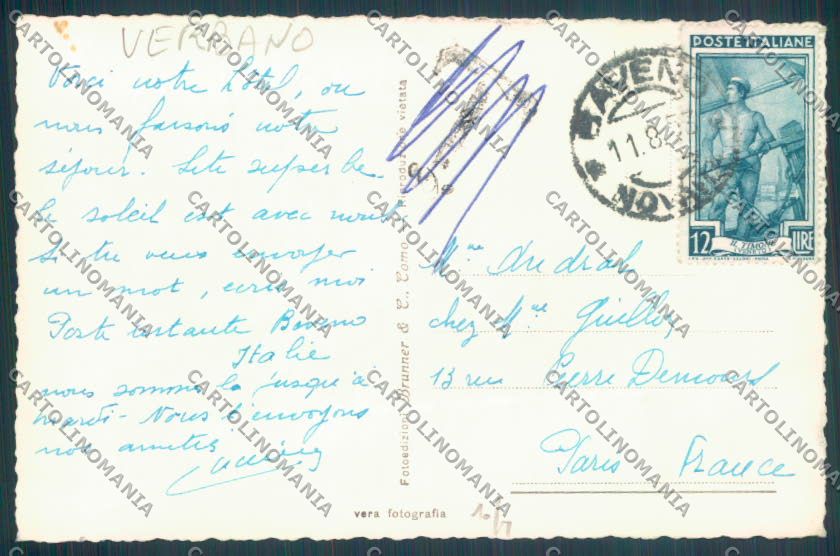 VERBANO
Voici notre hôtel, ou
nous faisons notre
séjour. Site superbe
le soleil est avec nous
Si tu veux envoyer
un mot, écris moi
Poste restante Baveno
Italie
nous sommes là jusqu'à
mardi - Nous t'envoyons
nos amitiés
Fotoedizioni Brunner & C., Como - Riproduzione vietata
vera fotografia
POSTE ITALIANE
12 IL TIMONE LIRE
BAVENO
11.8
NOVARA
Mme Andral
chez Mme Guillou
13 rue Pierre Demours
Paris France
CARTOLINOMANIA